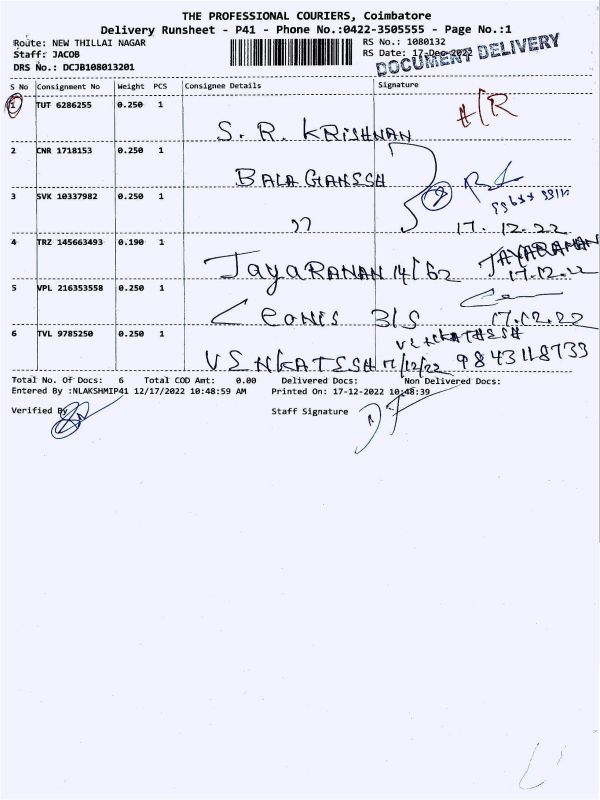 THE PROFESSIONAL COURIERS, Coimbatore
Delivery Runsheet - P41 - Phone No.:0422-3505555 - Page No.:1
Route: NEW THILLAI NAGAR RS No.: 1080132
Staff: JACOB RS Date: 17-Dec-2022
DRS No.: DCJB108013201 DOCUMENT DELIVERY
S No Consignment No Weight PCS Consignee Details Signature
1 TUT 6286255 0.250 1
S. R. KRISHNAN
2 CNR 1718153 0.250 1
BALA GANSSH
3 SVK 10337982 0.250 1
" 17.12.22
4 TRZ 145663493 0.190 1
JAYARANAN 14/62 JAYARAMAN 17.12.22
5 VPL 216353558 0.250 1
LEONIS 3/S 17.12.22
6 TVL 9785250 0.250 1
VENKATESH
VSNKATSSH 17/12/22 9843118733
Total No. Of Docs: 6 Total COD Amt: 0.00 Delivered Docs: Non Delivered Docs:
Entered By :NLAKSHMIP41 12/17/2022 10:48:59 AM Printed On: 17-12-2022 10:48:39
Verified By Staff Signature